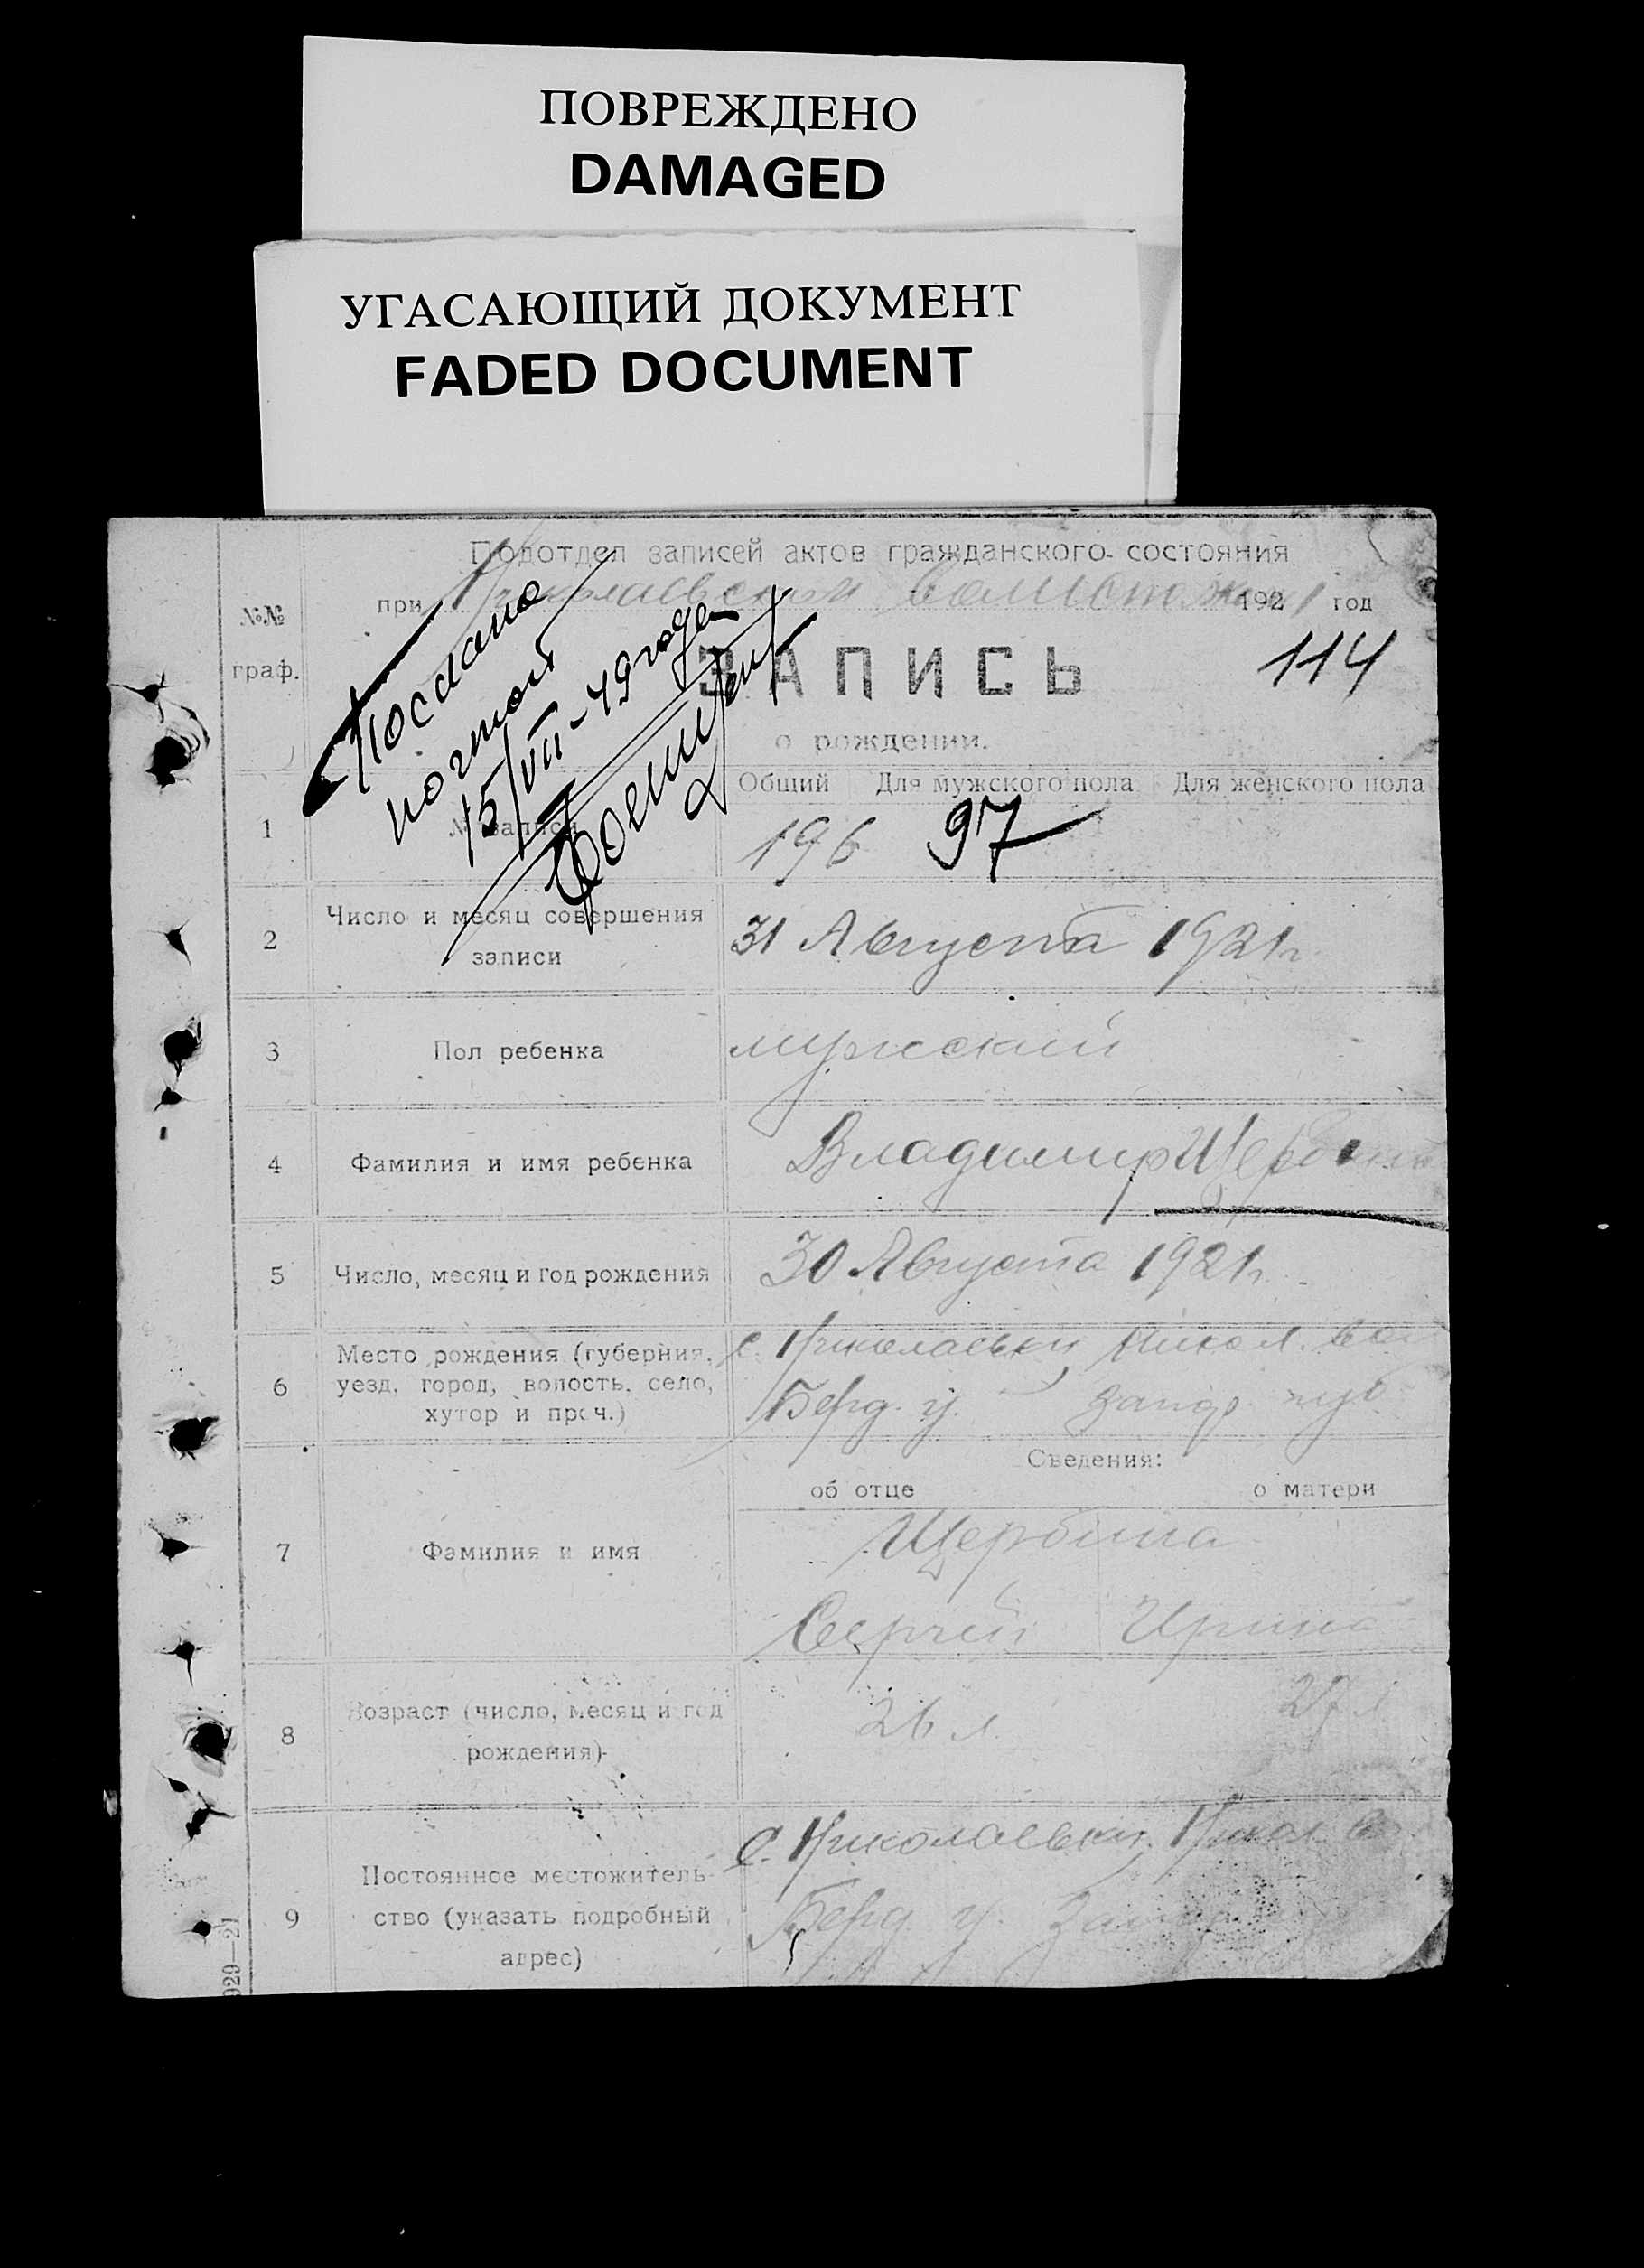 ПОВРЕЖДЕНО
DAMAGED
УГАСАЮЩИЙ ДОКУМЕНТ
FADED DOCUMENT
Подотдел записей актов гражданского состояния
при Николаевском 1921 год
№№ граф.
ЗАПИСЬ
114
о рождении.
Послано
почтой
15/VII-49 года
Общий Для мужского пола Для женского пола
1 № записи 196 97
2 Число и месяц совершения записи 31 Августа 1921 г.
3 Пол ребенка мужской
4 Фамилия и имя ребенка Владимир Щербина
5 Число, месяц и год рождения 30 Августа 1921 г.
6 Место рождения (губерния, с. Николаевки Никол. вол
уезд, город, волость, село, Берд. у. Запор. губ
хутор и проч.)
Сведения:
об отце о матери
7 Фамилия и имя Щербина
Сергей Ирина
8 Возраст (число, месяц и год 26 л. 27 л
рождения)
9 Постоянное местожитель- с. Николаевки, Никол. во
ство (указать подробный Берд. у. Запор.
адрес)
929—21